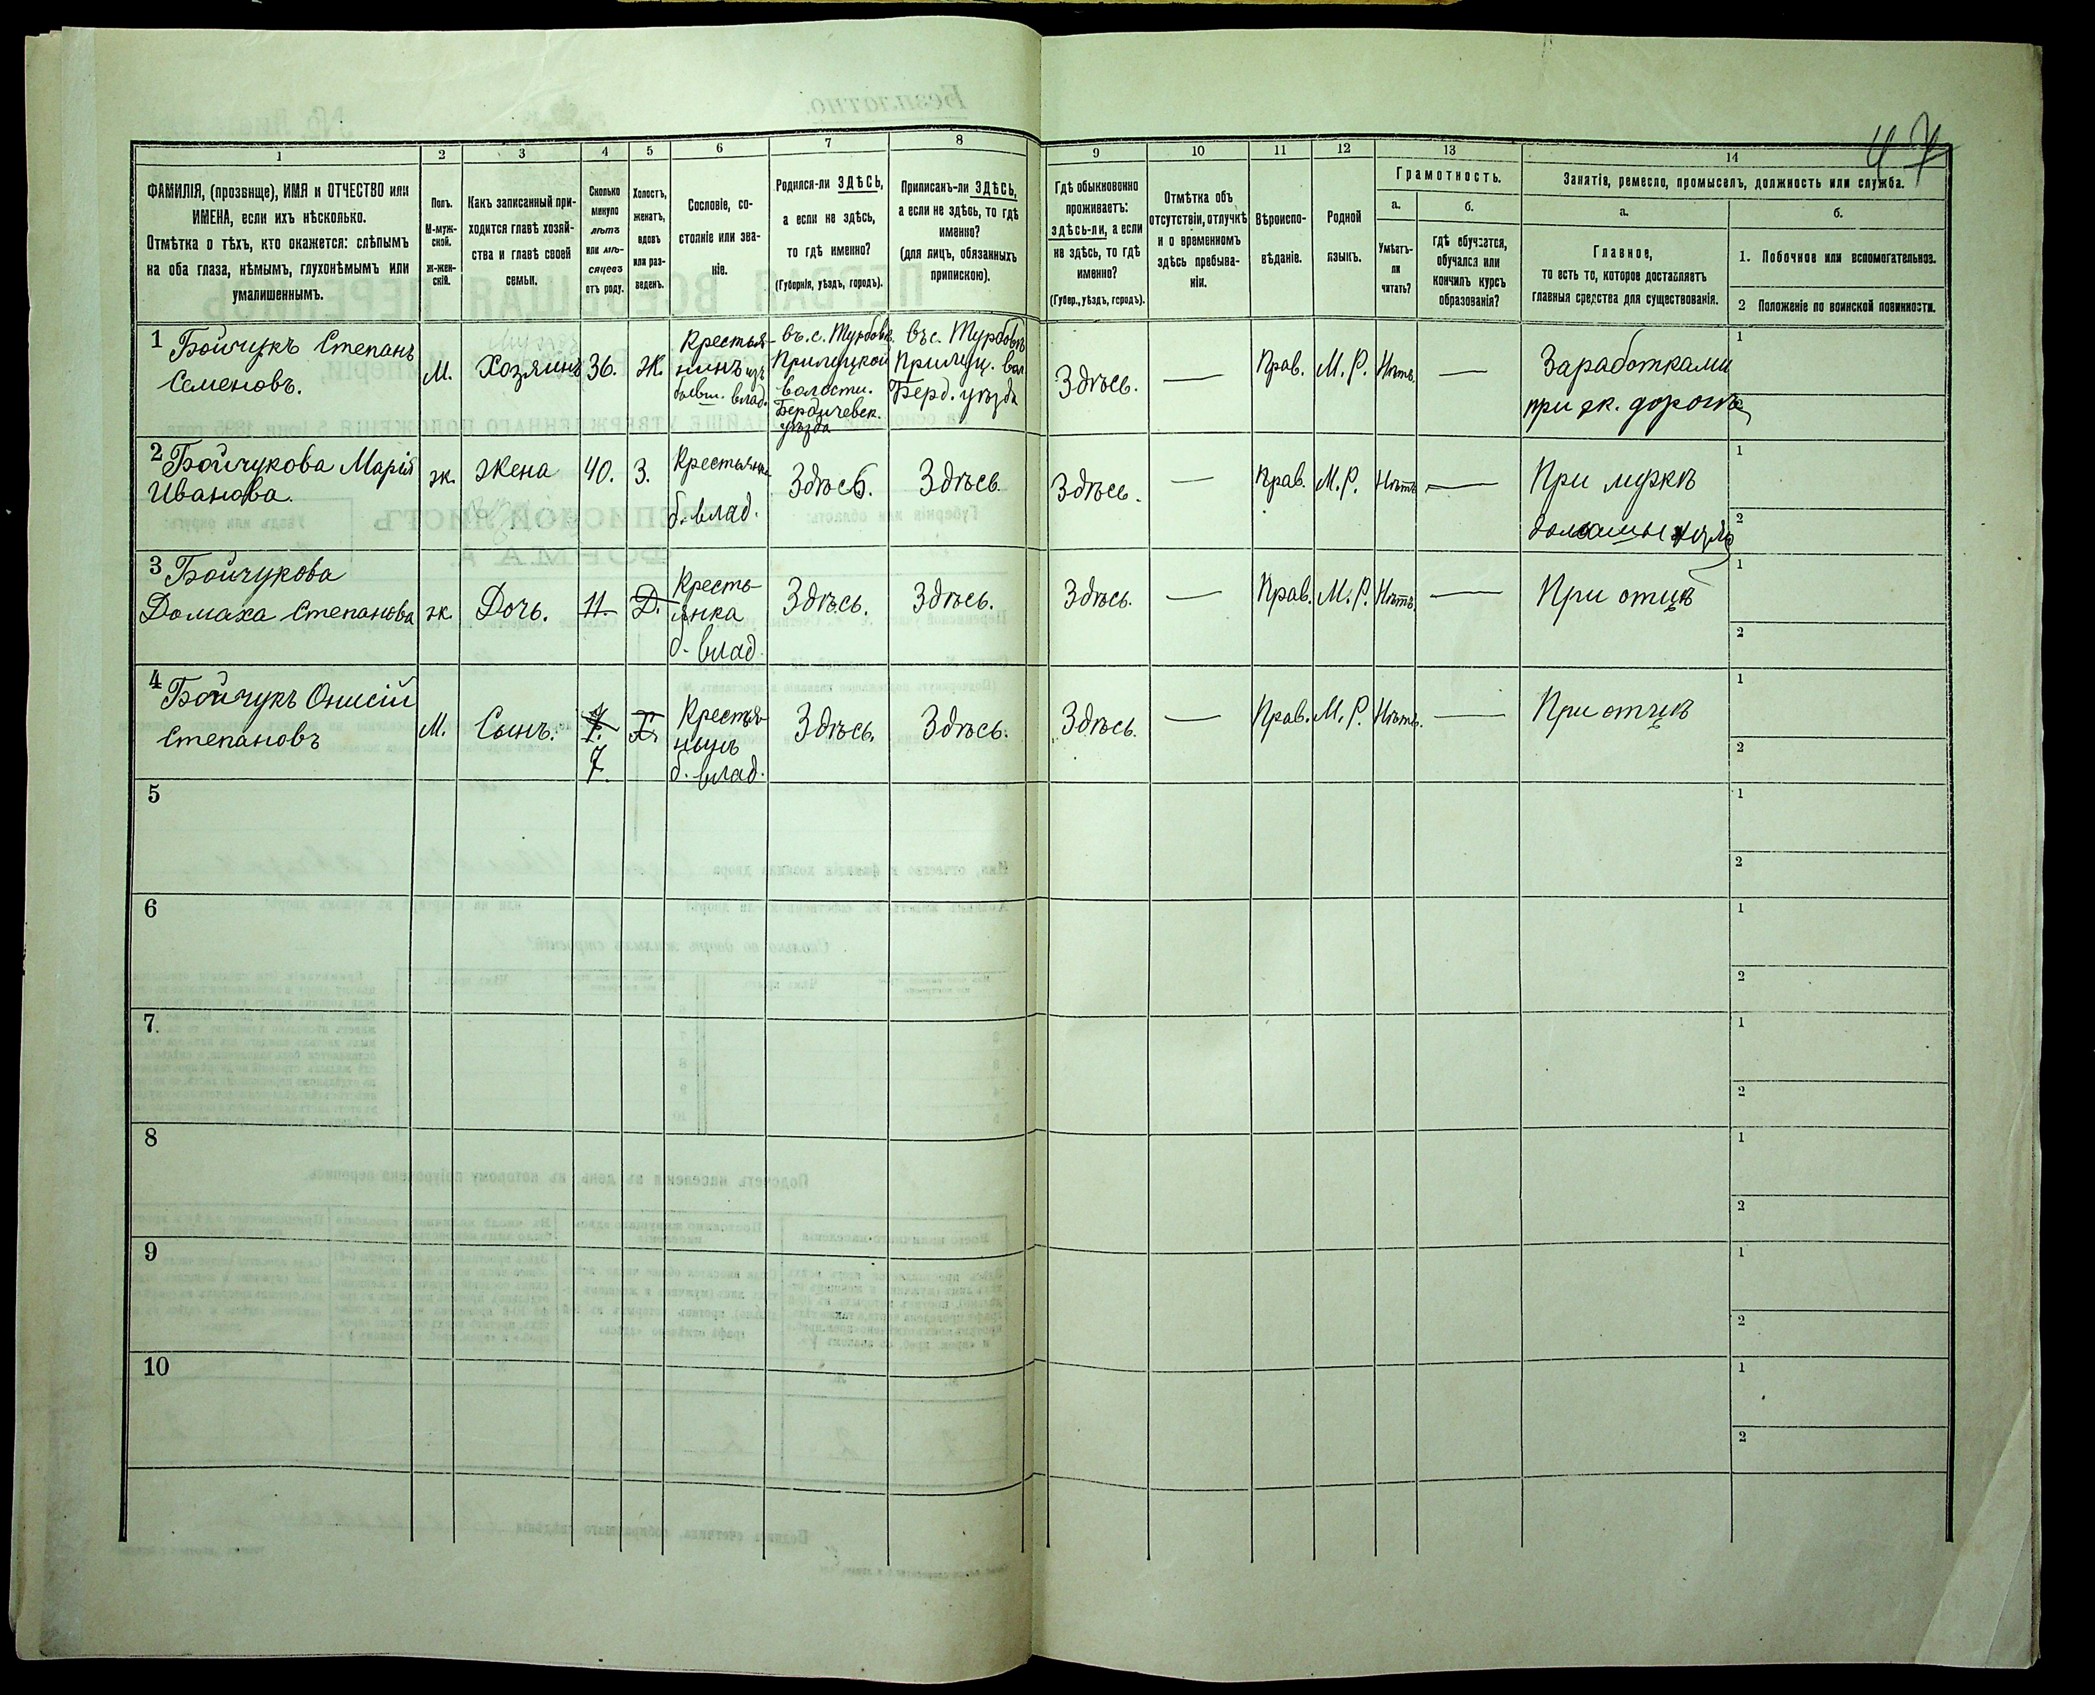 47
1 2 3 4 5 6 7 8 9 10 11 12 13 14
ФАМИЛІЯ, (прозвище), ИМЯ и ОТЧЕСТВО или
ИМЕНА, если ихъ нѣсколько.
Отмѣтка о тѣхъ, кто окажется: слѣпымъ
на оба глаза, нѣмымъ, глухонѣмымъ или
умалишеннымъ.
Полъ.
М-муж-
ской.
ж-жен-
скій.
Какъ записанный при-
ходится главѣ хозяй-
ства и главѣ своей
семьи.
Сколько
минуло
лѣтъ
или мѣ-
сяцевъ
отъ роду.
Холостъ,
женатъ,
вдовъ
или раз-
веденъ.
Сословіе, со-
стояніе или зва-
ніе.
Родился-ли ЗДѢСЬ,
а если не здѣсь,
то гдѣ именно?
(Губернія, уѣздъ, городъ).
Приписанъ-ли ЗДѢСЬ,
а если не здѣсь, то гдѣ
именно?
(для лицъ, обязанныхъ
припискою).
Гдѣ обыкновенно
проживаетъ:
здѣсь-ли, а если
не здѣсь, то гдѣ
именно?
(Губер., уѣздъ, городъ).
Отмѣтка объ
отсутствіи, отлучкѣ
и о временномъ
здѣсь пребыва-
ніи.
Вѣроиспо-
вѣданіе.
Родной
языкъ.
Грамотность.
а.
Умѣетъ-
ли
читать?
б.
гдѣ обучается,
обучался или
кончилъ курсъ
образованія?
Занятіе, ремесло, промыселъ, должность или служба.
а.
Главное,
то есть то, которое доставляетъ
главныя средства для существованія.
б.
1. Побочное или вспомогательное.
2 Положеніе по воинской повинности.
1 Бойчукъ Степанъ
Семеновъ.
М.
Хозяинъ
36.
Ж.
Крестья-
нинъ изъ
бывш. влад.
въ с. Турбовѣ
Прилуцкой
волости.
Бердичевск.
уѣзда
въ с. Турбовѣ
Прилуц. вол
Берд. уѣзда
Здѣсь.
—
Прав.
М. Р.
Нѣтъ.
—
Заработками
при ж. дорогѣ
1
2
2 Бойчукова Марія
Иванова.
ж.
Жена
40.
З.
Крестьянка
б. влад.
Здѣсь.
Здѣсь.
Здѣсь.
—
Прав.
М. Р.
Нѣтъ
—
При мужѣ
1
2
3 Бойчукова
Домаха Степанова
ж
Дочь.
11.
Д.
Кресть-
янка
б. влад.
Здѣсь.
Здѣсь.
Здѣсь.
—
Прав.
М. Р.
Нѣтъ.
—
При отцѣ
1
2
4 Бойчукъ Онисій
Степановъ
М.
Сынъ.
7.
Х.
Крестья-
нинъ
б. влад.
Здѣсь.
Здѣсь.
Здѣсь.
—
Прав.
М. Р.
Нѣтъ.
—
При отцѣ
1
2
5
1
2
6
1
2
7
1
2
8
1
2
9
1
2
10
1
2